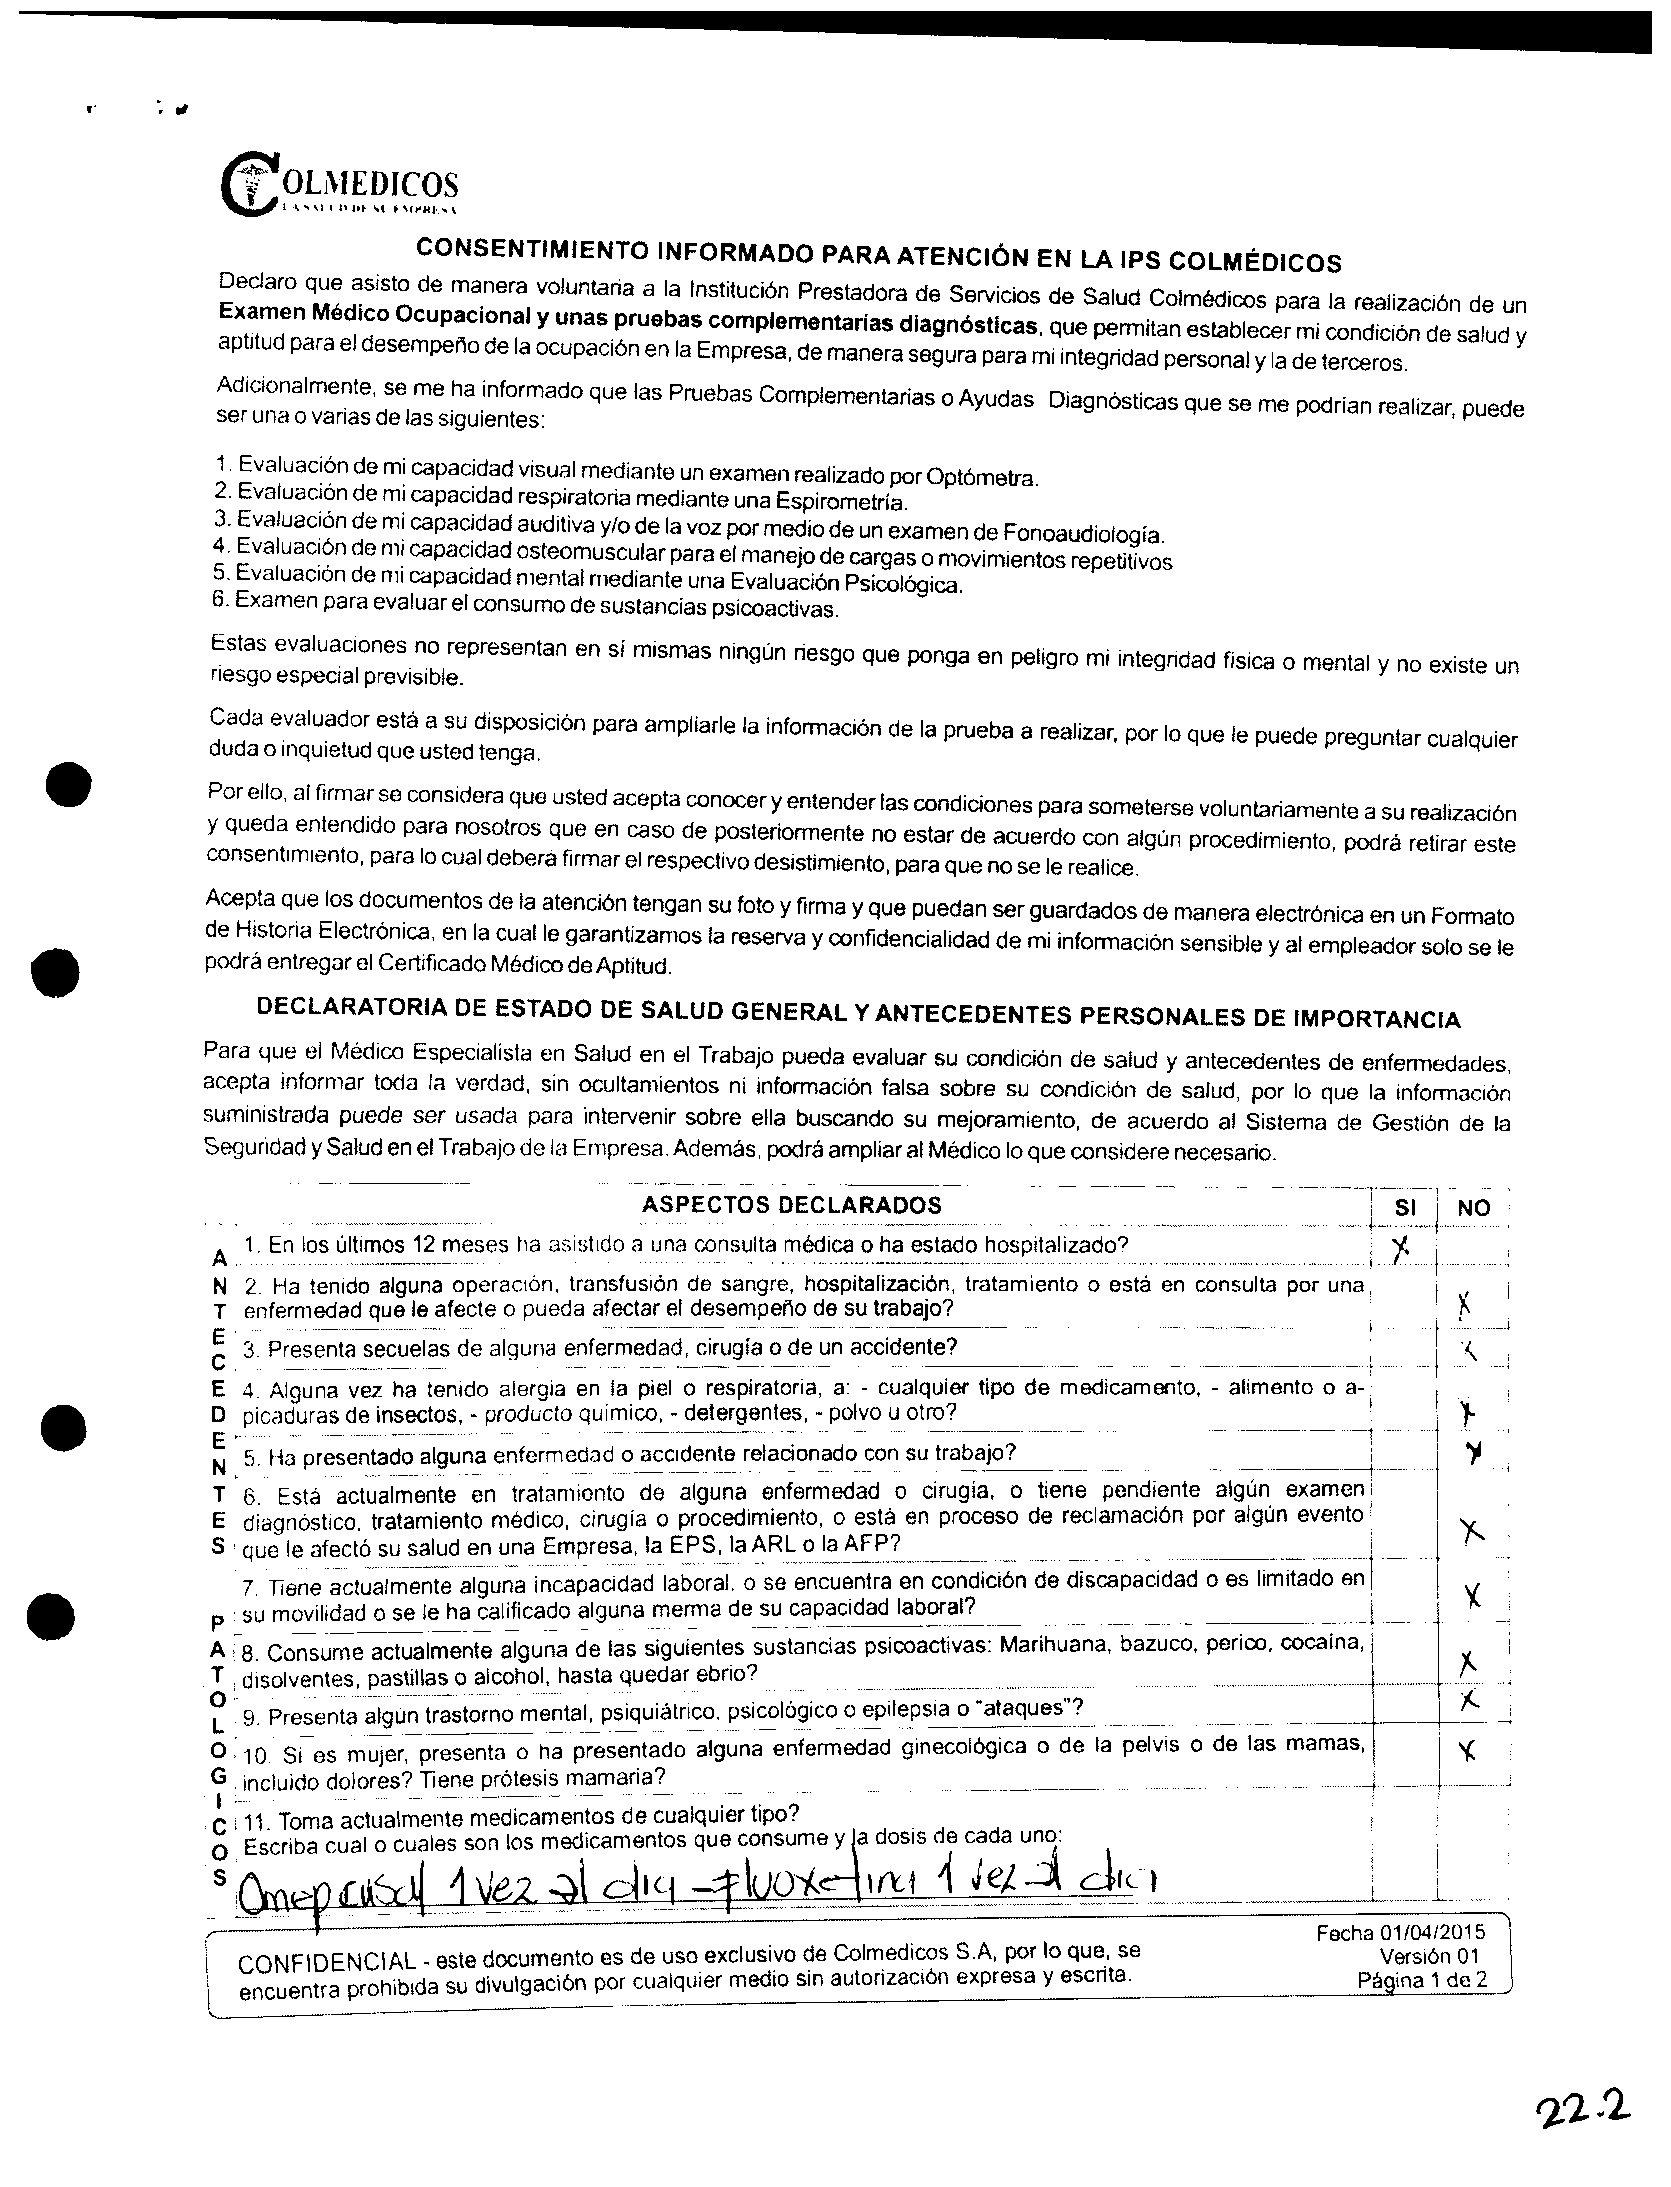 COLMEDICOS
LA SALUD DE SU EMPRESA
CONSENTIMIENTO INFORMADO PARA ATENCIÓN EN LA IPS COLMÉDICOS
Declaro que asisto de manera voluntaria a la Institución Prestadora de Servicios de Salud Colmédicos para la realización de un
Examen Médico Ocupacional y unas pruebas complementarias diagnósticas, que permitan establecer mi condición de salud y
aptitud para el desempeño de la ocupación en la Empresa, de manera segura para mi integridad personal y la de terceros.
Adicionalmente, se me ha informado que las Pruebas Complementarias o Ayudas Diagnósticas que se me podrían realizar, puede
ser una o varias de las siguientes:
1. Evaluación de mi capacidad visual mediante un examen realizado por Optómetra.
2. Evaluación de mi capacidad respiratoria mediante una Espirometría.
3. Evaluación de mi capacidad auditiva y/o de la voz por medio de un examen de Fonoaudiología.
4. Evaluación de mi capacidad osteomuscular para el manejo de cargas o movimientos repetitivos
5. Evaluación de mi capacidad mental mediante una Evaluación Psicológica.
6. Examen para evaluar el consumo de sustancias psicoactivas.
Estas evaluaciones no representan en sí mismas ningún riesgo que ponga en peligro mi integridad física o mental y no existe un
riesgo especial previsible.
Cada evaluador está a su disposición para ampliarle la información de la prueba a realizar, por lo que le puede preguntar cualquier
duda o inquietud que usted tenga.
Por ello, al firmar se considera que usted acepta conocer y entender las condiciones para someterse voluntariamente a su realización
y queda entendido para nosotros que en caso de posteriormente no estar de acuerdo con algún procedimiento, podrá retirar este
consentimiento, para lo cual deberá firmar el respectivo desistimiento, para que no se le realice.
Acepta que los documentos de la atención tengan su foto y firma y que puedan ser guardados de manera electrónica en un Formato
de Historia Electrónica, en la cual le garantizamos la reserva y confidencialidad de mi información sensible y al empleador solo se le
podrá entregar el Certificado Médico de Aptitud.
DECLARATORIA DE ESTADO DE SALUD GENERAL Y ANTECEDENTES PERSONALES DE IMPORTANCIA
Para que el Médico Especialista en Salud en el Trabajo pueda evaluar su condición de salud y antecedentes de enfermedades,
acepta informar toda la verdad, sin ocultamientos ni información falsa sobre su condición de salud, por lo que la información
suministrada puede ser usada para intervenir sobre ella buscando su mejoramiento, de acuerdo al Sistema de Gestión de la
Seguridad y Salud en el Trabajo de la Empresa. Además, podrá ampliar al Médico lo que considere necesario.
ASPECTOS DECLARADOS SI NO
ANTECEDENTES PATOLOGICOS
1. En los últimos 12 meses ha asistido a una consulta médica o ha estado hospitalizado? X
2. Ha tenido alguna operación, transfusión de sangre, hospitalización, tratamiento o está en consulta por una
enfermedad que le afecte o pueda afectar el desempeño de su trabajo? X
3. Presenta secuelas de alguna enfermedad, cirugía o de un accidente? X
4. Alguna vez ha tenido alergia en la piel o respiratoria, a: - cualquier tipo de medicamento, - alimento o a-
picaduras de insectos, - producto químico, - detergentes, - polvo u otro? X
5. Ha presentado alguna enfermedad o accidente relacionado con su trabajo? X
6. Está actualmente en tratamiento de alguna enfermedad o cirugía, o tiene pendiente algún examen
diagnóstico, tratamiento médico, cirugía o procedimiento, o está en proceso de reclamación por algún evento
que le afectó su salud en una Empresa, la EPS, la ARL o la AFP? X
7. Tiene actualmente alguna incapacidad laboral, o se encuentra en condición de discapacidad o es limitado en
su movilidad o se le ha calificado alguna merma de su capacidad laboral? X
8. Consume actualmente alguna de las siguientes sustancias psicoactivas: Marihuana, bazuco, perico, cocaína,
disolventes, pastillas o alcohol, hasta quedar ebrio? X
9. Presenta algún trastorno mental, psiquiátrico, psicológico o epilepsia o "ataques"? X
10. Si es mujer, presenta o ha presentado alguna enfermedad ginecológica o de la pelvis o de las mamas,
incluido dolores? Tiene prótesis mamaria? X
11. Toma actualmente medicamentos de cualquier tipo?
Escriba cual o cuales son los medicamentos que consume y la dosis de cada uno:
Omeprasol 1 vez al dia - fluoxetina 1 vez al dia
CONFIDENCIAL - este documento es de uso exclusivo de Colmedicos S.A, por lo que, se
encuentra prohibida su divulgación por cualquier medio sin autorización expresa y escrita.
Fecha 01/04/2015
Versión 01
Página 1 de 2
22.2